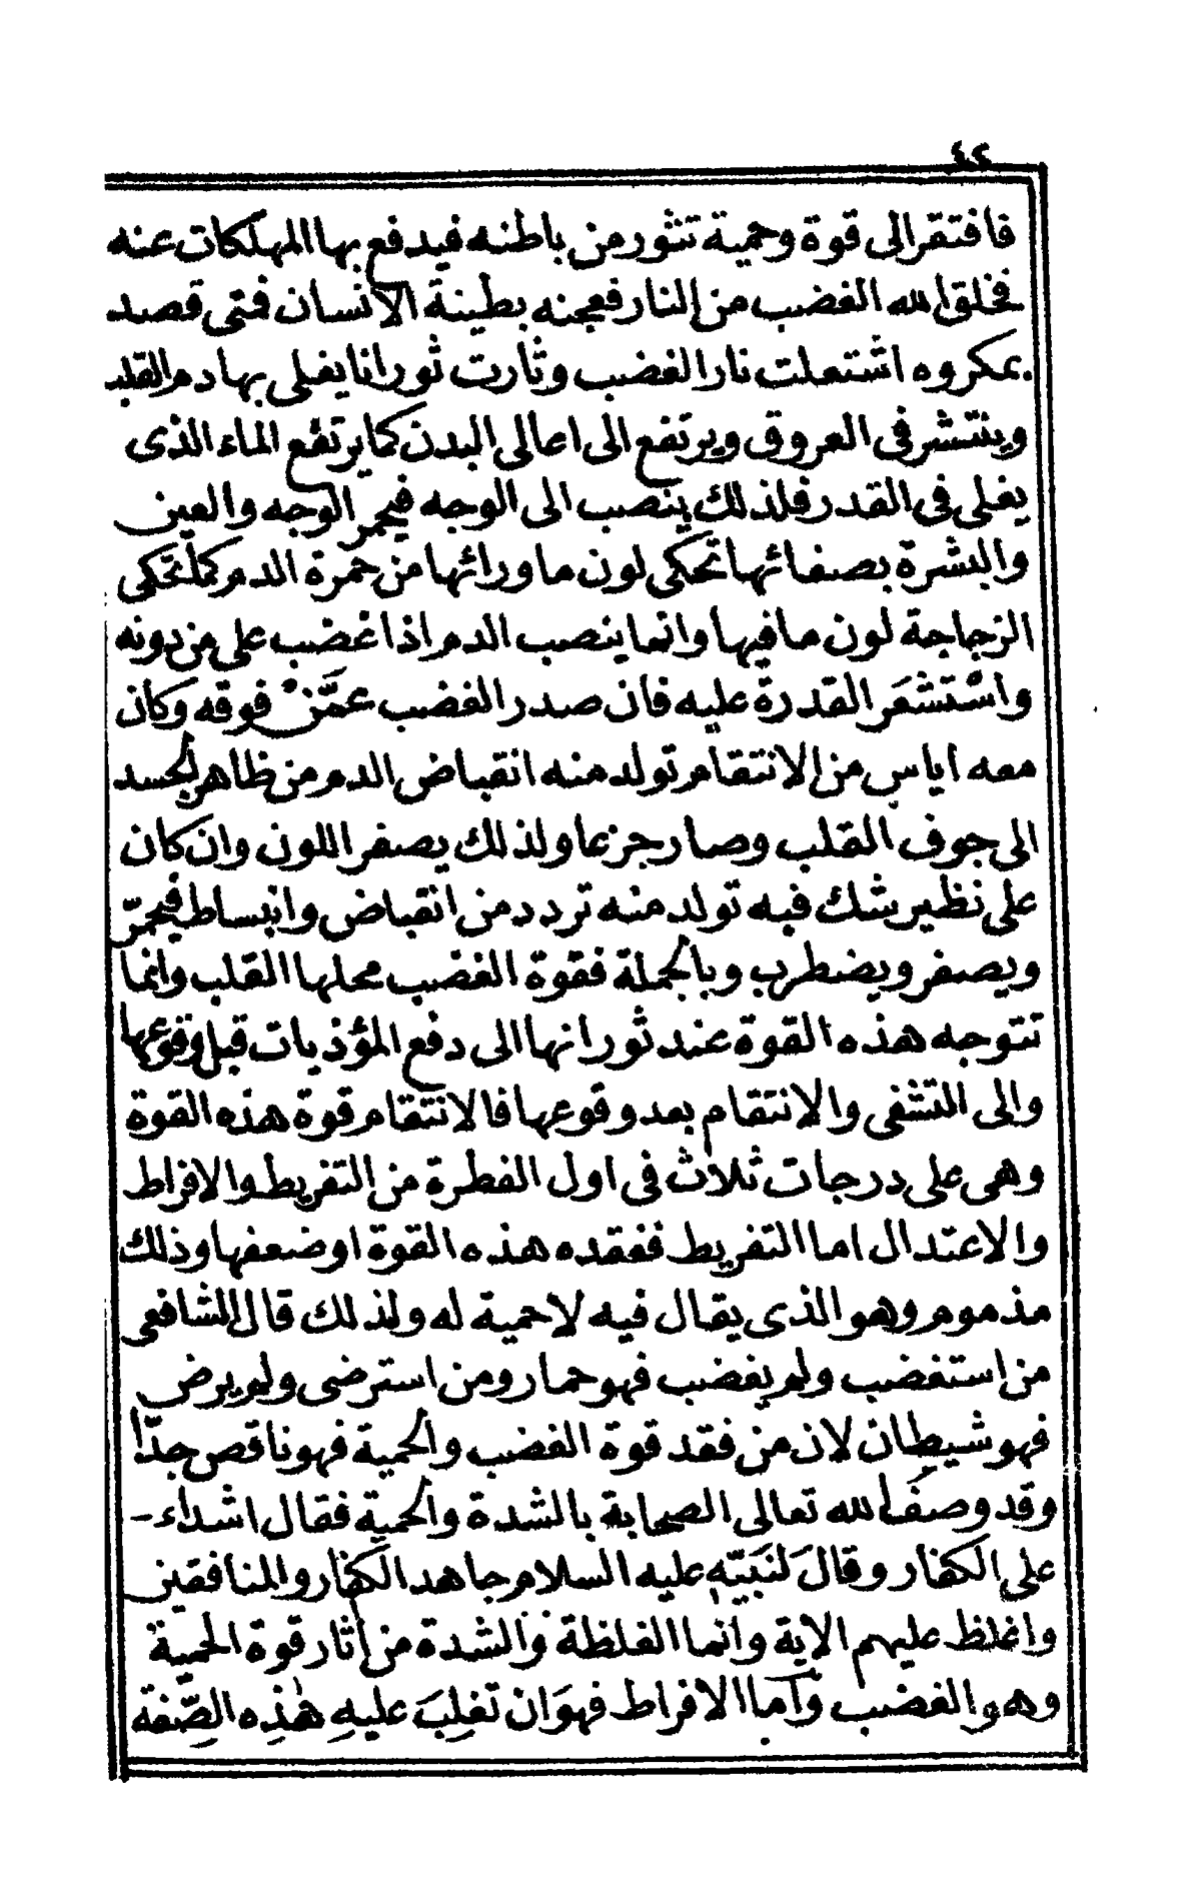 ٤٢
فافتقر الى قوة وحمية تثور من باطنه فيدفع بها المهلكات عنه
فخلق الله الغضب من النار فعجنه بطينة الانسان فمتى قصد
بمكروه اشتعلت نار الغضب وثارت ثورانا يغلى بها دم القلب
وينتشر فى العروق ويرتفع الى اعالى البدن كما يرتفع الماء الذى
يغلى فى القدر فلذلك ينصب الى الوجه فيحمر الوجه والعين
والبشرة بصفائها تحكى لون ما ورائها من حمرة الدم كما تحكى
الزجاجة لون ما فيها وانما ينصب الدم اذا غضب على من دونه
واستشعَر القدرة عليه فان صدر الغضب عمَّنْ فوقه وكان
معه اياس من الانتقام تولد منه انقباض الدم من ظاهر الجسد
الى جوف القلب وصار جزعا ولذلك يصفر اللون وان كان
على نظير شك فيه تولد منه تردد من انقباض وانبساط فيحمرّ
ويصفر ويضطرب وبالجملة فقوة الغضب محلها القلب وانما
تتوجه هذه القوة عند ثورانها الى دفع المؤذيات قبل وقوعها
والى التشفى والانتقام بعد وقوعها فالانتقام قوة هذه القوة
وهى على درجات ثلاث فى اول الفطرة من التفريط والافراط
والاعتدال اما التفريط ففقده هذه القوة او ضعفها وذلك
مذموم وهو الذى يقال فيه لا حمية له ولذلك قال الشافعى
من استغضب ولم يغضب فهو حمار ومن استرضى ولم يرض
فهو شيطان لان من فقد قوة الغضب والحمية فهو ناقص جدّا
وقد وصفَ الله تعالى الصحابة بالشدة والحمية فقال اشداء -
على الكفار وقالَ لنَبَيّهِ عليه السلام جاهد الكفار والمنافقين
واغلظ عليهم الاية وانما الغلظة والشدة من آثار قوة الحمية
وهو الغضب وآما الافراط فهوَ ان تغلِبَ عليهِ هٰذِه الصِّفة